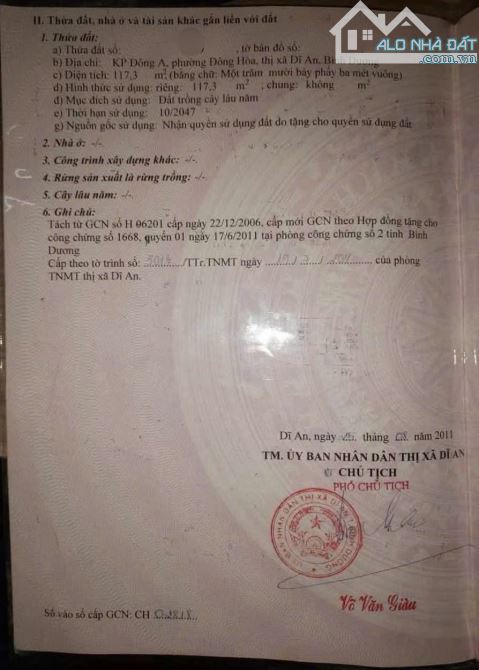 ALO NHÀ ĐẤT
.com.vn
II. Thửa đất, nhà ở và tài sản khác gắn liền với đất
1. Thửa đất:
a) Thửa đất số: , tờ bản đồ số:
b) Địa chỉ: KP Đông A, phường Đông Hòa, thị xã Dĩ An, Bình Dương
c) Diện tích: 117,3 m² (bằng chữ: Một trăm mười bảy phẩy ba mét vuông)
d) Hình thức sử dụng: riêng: 117,3 m², chung: không m²
đ) Mục đích sử dụng: Đất trồng cây lâu năm
e) Thời hạn sử dụng: 10/2047
g) Nguồn gốc sử dụng: Nhận quyền sử dụng đất do tặng cho quyền sử dụng đất
2. Nhà ở: -/-
3. Công trình xây dựng khác: -/-
4. Rừng sản xuất là rừng trồng: -/-
5. Cây lâu năm: -/-
6. Ghi chú:
Tách từ GCN số H 06201 cấp ngày 22/12/2006, cấp mới GCN theo Hợp đồng tặng cho
công chứng số 1668, quyển 01 ngày 17/6/2011 tại phòng công chứng số 2 tỉnh Bình
Dương
Cấp theo tờ trình số: /TTr.TNMT ngày của phòng
TNMT thị xã Dĩ An.
Dĩ An, ngày tháng năm 2011
TM. ỦY BAN NHÂN DÂN THỊ XÃ DĨ AN
CHỦ TỊCH
PHÓ CHỦ TỊCH
Võ Văn Giàu
Số vào sổ cấp GCN: CH